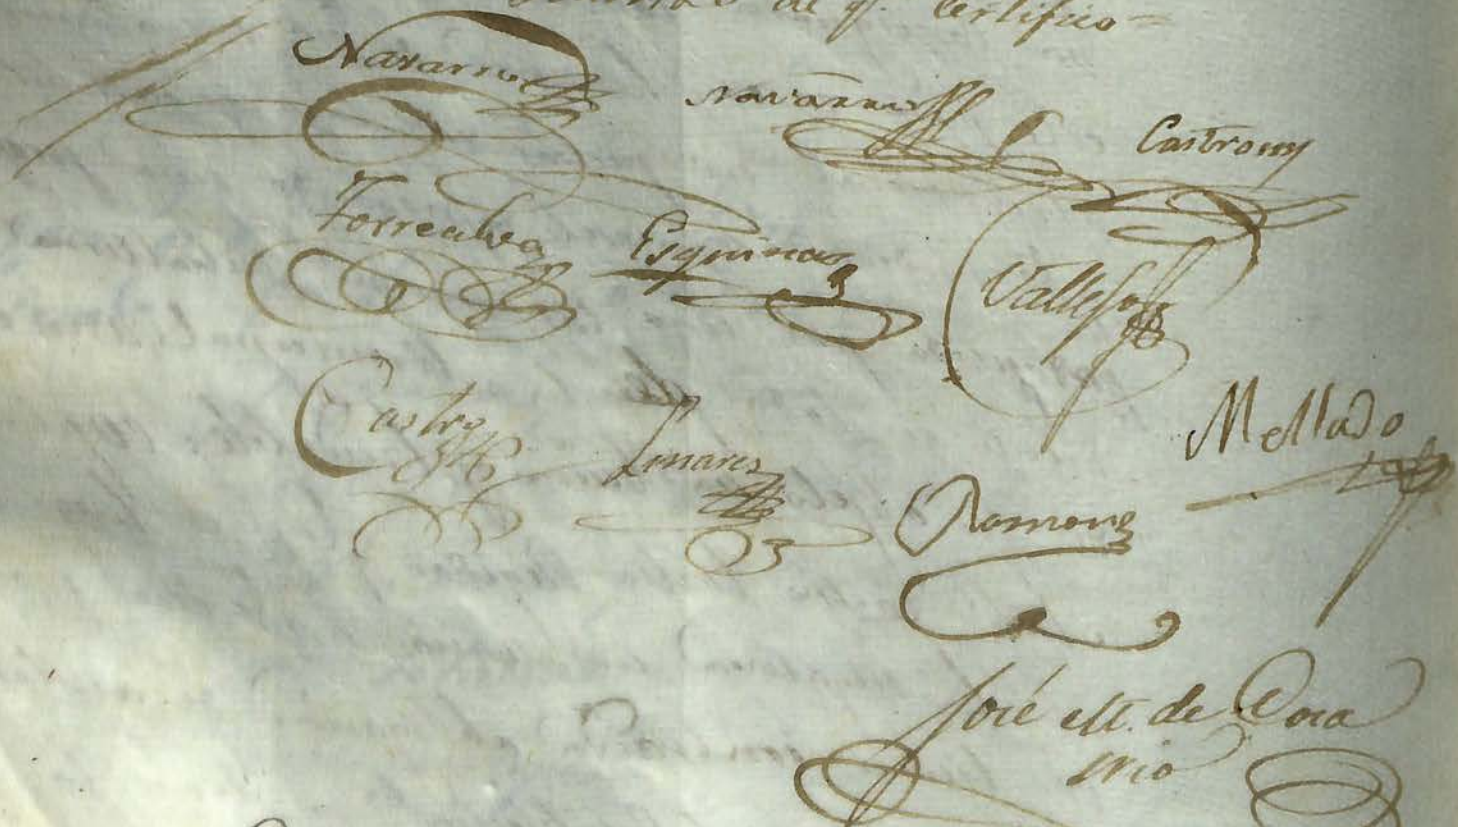 de q.e Certifico=
Navarro
Navarro
Castromy
Torrealva
Esquinas
Vallejo
Castro
Linares
Mellado
Romans
José M. de Roca
srio